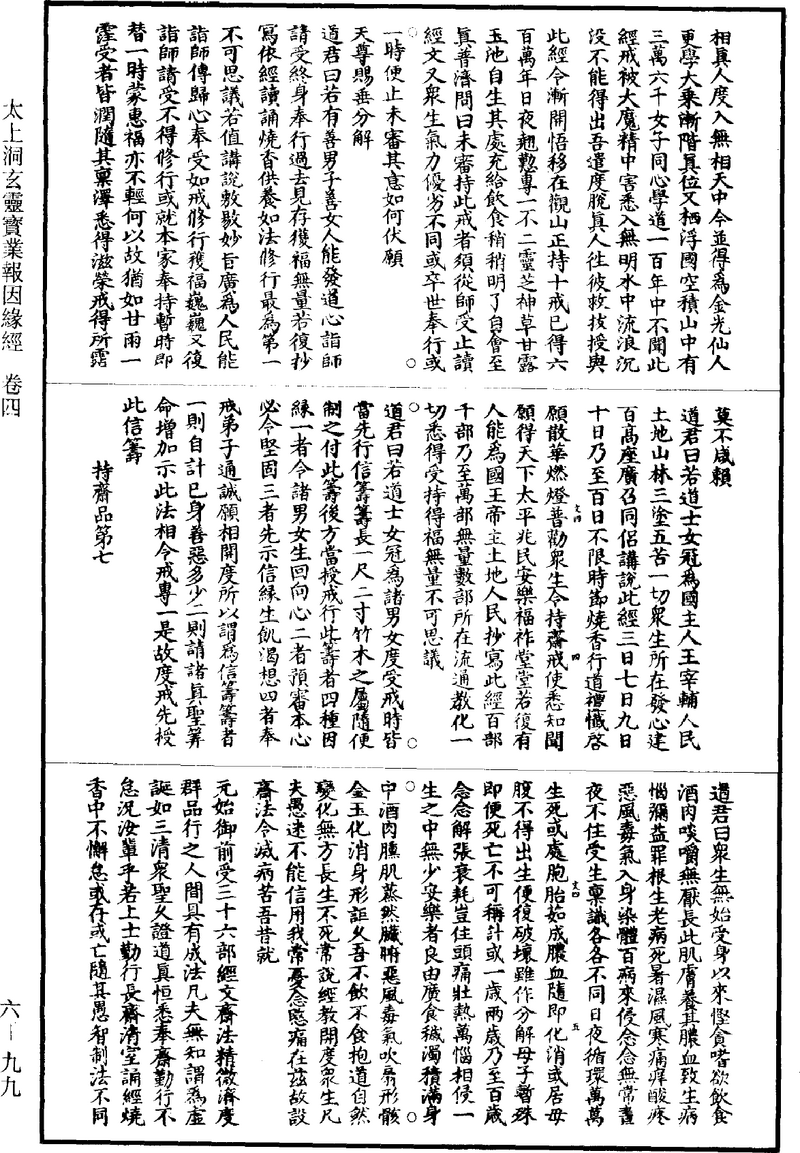 太上洞玄靈寶業報因緣經　卷四
六－九九
相真人度入無相天中今並得爲金光仙人
更學大乘漸階真位又栖浮國空積山中有
三萬六千女子同心學道一百年中不聞此
經戒被大魔精中害悉入無明水中流浪沉
没不能得出吾遣度脫真人往彼救拔授與
此經令漸開悟移在觀山正持十戒已得六
百萬年日夜翹勤專一不二靈芝神草甘露
玉池自生其處充給飲食稍稍明了自會至
真普濟問曰未審持此戒者須從師受止讀
經文又衆生氣力優劣不同或卒世奉行或
一時便止未審其意如何伏願
天尊賜垂分解
道君曰若有善男子善女人能發道心詣師
請受終身奉行過去見存獲福無量若復抄
寫依經讀誦燒香供養如法修行最爲第一
不可思議若值講說敷敭妙旨廣爲人民能
詣師傳歸心奉受如戒修行獲福巍巍又復
詣師請受不得修行或就本家奉持暫時即
替一時蒙惠福亦不輕何以故猶如甘雨一
霔受者皆潤隨其稟澤悉得滋榮戒得所霑
莫不咸賴
道君曰若道士女冠爲國主人王宰輔人民
土地山林三塗五苦一切衆生所在發心建
百高座廣召同侶講說此經三日七日九日
十日乃至百日不限時節燒香行道禮懺啓
願散華燃燈普勸衆生令持齋戒使悉知聞
願得天下太平兆民安樂福祚堂堂若復有
人能爲國王帝主土地人民抄寫此經百部
千部乃至萬部無量數部所在流通教化一
切悉得受持得福無量不可思議
道君曰若道士女冠爲諸男女度受戒時皆
當先行信籌籌長一尺二寸竹木之屬隨便
制之付此籌後方當授戒行此籌者四種因
緣一者令諸男女生回向心二者預審本心
必令堅固三者先示信緣生飢渴想四者奉
戒弟子通誠願相開度所以謂爲信籌籌者
一則自計已身善惡多少二則請諸真聖筭
命增加示此法相令戒專一是故度戒先授
此信籌
持齋品第七
道君曰衆生無始受身以來慳貪嗜欲飲食
酒肉啖嚼無厭長此肌膚養其膿血致生病
惱彌益罪根生老病死暑濕風寒痛痒酸疼
惡風毒氣入身染體百病來侵念念無常晝
夜不住受生稟識各各不同日夜循環萬萬
生死或處胞胎茹成膿血隨即化消或居母
腹不得出生便復破壞雖作分解母子暫殊
即便死亡不可稱計或一歲兩歲乃至百歲
念念解張衰耗豈住頭痛壯熱萬惱相侵一
生之中無少安樂者良由廣食穢濁積滿身
中酒肉臐肌蒸然臟腑惡風毒氣吹扇形骸
金玉化消身形詎久吾不飲不食抱道自然
變化無方長生不死常說經教開度衆生凡
夫愚迷不能信用我常憂念愍痛在茲故設
齋法令滅病苦吾昔就
元始御前受三十六部經文齋法精微濟度
群品行之人間具有成法凡夫無知謂爲虛
誕如三清衆聖久證道真恒悉奉齋勤行不
怠況汝輩乎若上士勤行長齋清室誦經燒
香中不懈怠或存或亡隨其愚智制法不同